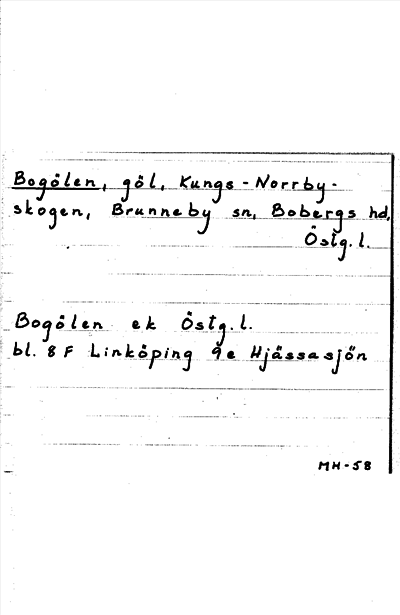 Bogölen, göl, Kungs-Norrby-
skogen, Brunneby sn, Bobergs hd,
Östg.l.
Bogölen ek Östg.l.
bl. 8 F Linköping 9e Hjässasjön
MH-58